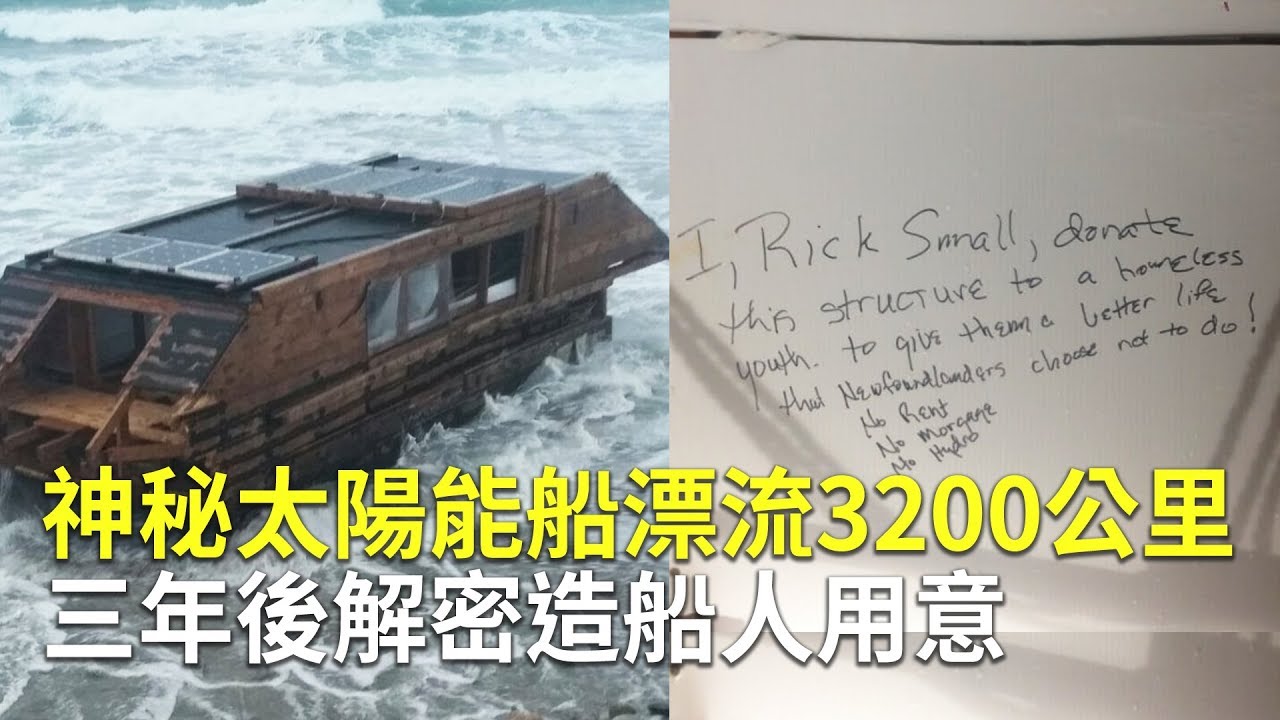 I, Rick Small, donate
this structure to a homeless
youth. to give them a better life
that Newfoundlanders choose not to do!
No Rent
No morgage
No Hydro
神秘太陽能船漂流3200公里
三年後解密造船人用意